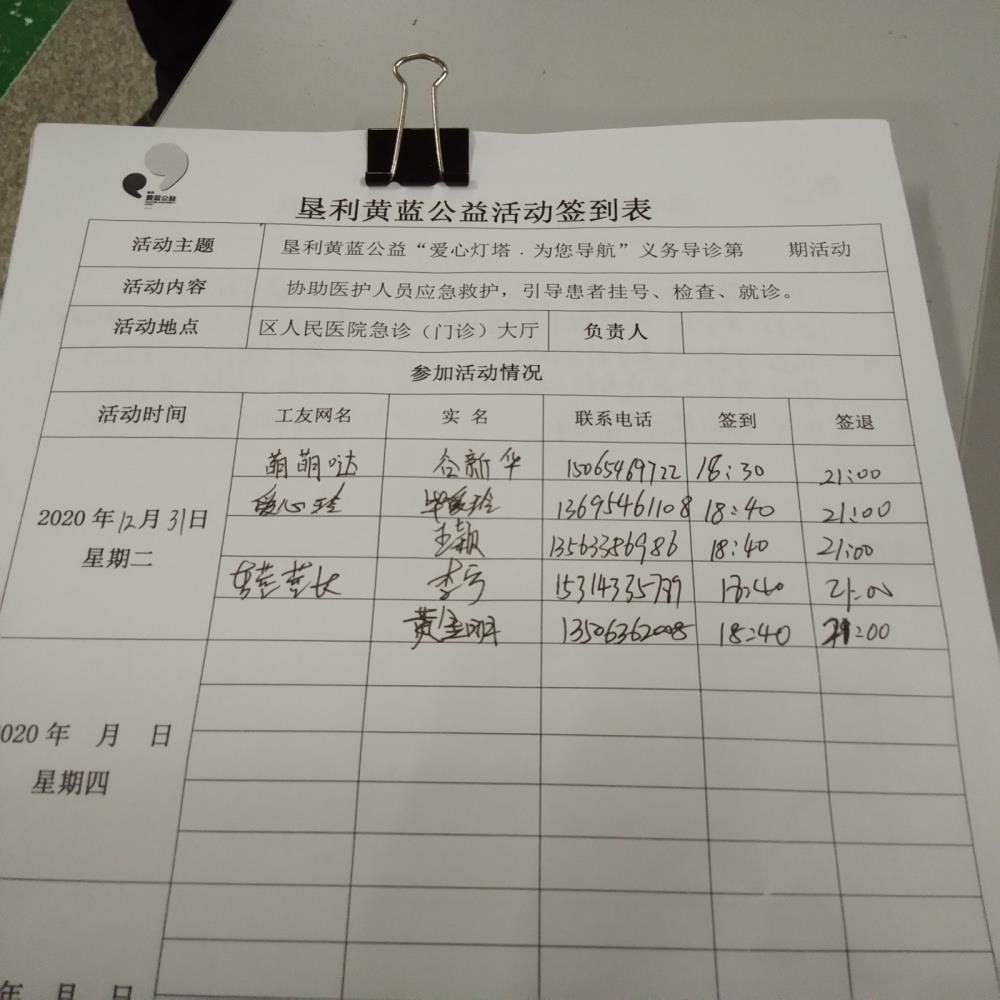 黄蓝公益
垦利黄蓝公益活动签到表
活动主题 垦利黄蓝公益“爱心灯塔．为您导航”义务导诊第 期活动
活动内容 协助医护人员应急救护，引导患者挂号、检查、就诊。
活动地点 区人民医院急诊（门诊）大厅 负责人
参加活动情况
活动时间 工友网名 实 名 联系电话 签到 签退
萌萌哒 谷新华 15065469722 18:30 21:00
2020年12月31日 爱心玲 毕爱玲 13695461108 18:40 21:00
星期二 王颖 13563386986 18:40 21:00
李 18:40 21:00
黄 13506362008 18:40 21:00
020年 月 日
星期四
年 月 日